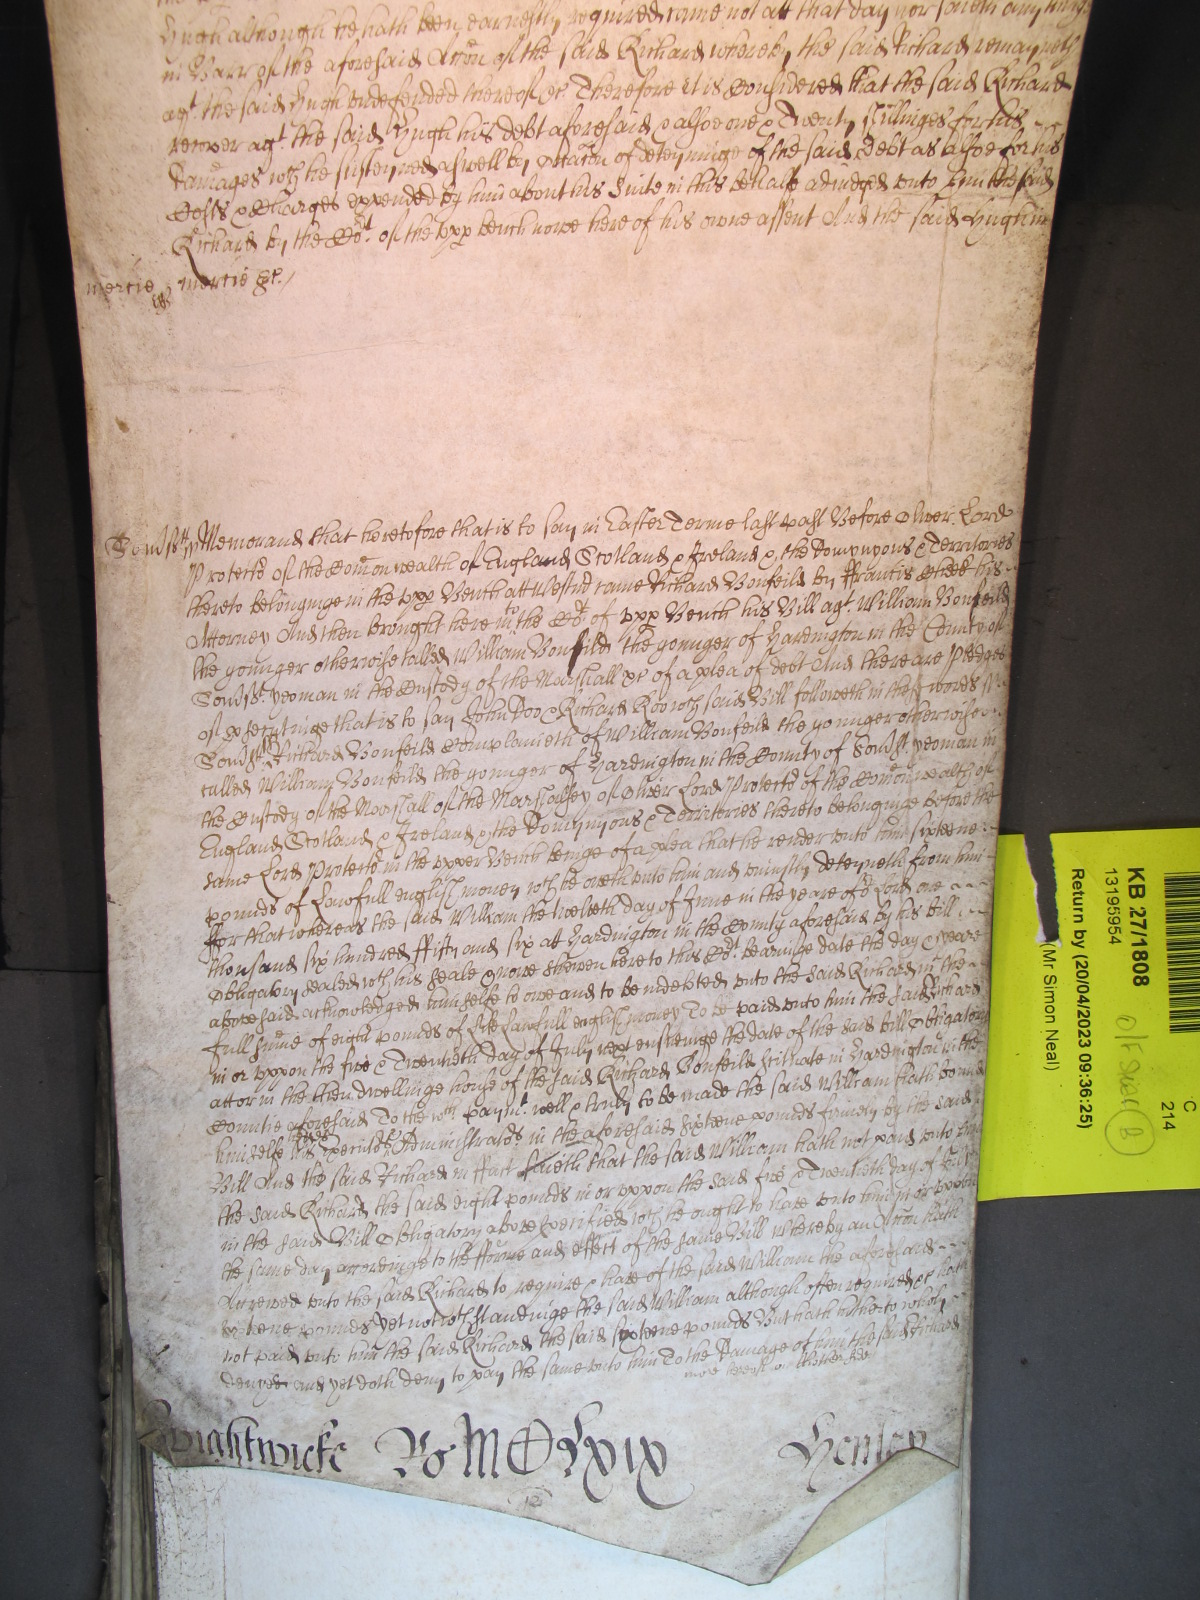 Hugh although he hath been earnestly required came not att that day nor saieth any thing
in Barr of the aforesaid Accon of the said Richard whereby the said Richard remayneth
agt. the said Hugh undefended thereof &c. Therefore it is Considered that the said Richard
recover agt. the said Hugh his debt aforesaid & alsoe one & Twenty shillinges for his
Damages wch he susteyned aswell by occacon of deteyninge of the said Debt as alsoe for his
Costs & Charges expended by him about his Suite in this behalf adiudged unto him the said
Richard by the Cot. of the upp bench nowe here of his owne assent And the said Hugh in
mercie mercie &c.
Somst. ss Memorand that heretofore that is to say in Easter Terme last past Before Oliver Lord
Protector of the Comon wealth of England Scotland & Ireland & the Dominyons & Territories
thereto belonginge in the upp Bench att Westmr came Richard Bonfeild by Francis his
Attorney And then brought here into the Cot of upp Bench his Bill agt. William Bonfeild
the younger otherwise called William Bonfeild the younger of Hardington in the County of
Somst. yeoman in the Custody of the Marshall &c of a plea of debt And there are Pledges
of prosecutinge that is to say John Doo & Richard Roo wch said Bill followeth in these words ss
Somst. ss Richard Bonfeild Complaineth of William Bonfeild the younger otherwise
called William Bonfeild the younger of Hardington in the County of Somst. yeoman in
the Custody of the Marshall of the Marshalsey of Oliver Lord Protector of the Comonwealth of
England Scotland & Ireland & the Dominyons & Territories thereto belonginge before the
same Lord Protector in the upper Bench beinge of a plea that he render unto him sixteene
pounds of Lawfull english money wch he oweth unto him and uniustly deteyneth from him
For that whereas the said William the twelveth day of June in the yeare of or Lord one
thousand six hundred fifty and six att Hardington in the County aforesaid by his bill
Obligatory sealed wth his seale & nowe shewen here to this Cot. bearinge date the day & yeare
abovesaid acknowledged himselfe to owe and to be indebted unto the said Richard in the
full sume of eight pounds of like lawfull english money To be paid unto him the said Richard
in or uppon the five & Twentieth day of July next ensueinge the date of the said bill Obligatory
att or in the then dwellinge house of the said Richard Bonfeild scituate in Hardington in the
Countie aforesaid To the wch paymt. well & truly to be made the said William hath bound
himselfe his heires Executors & Administrators in the aforesaid sixteene pounds firmely by the said
Bill And the said Richard in fact saieth that the said William hath not paid unto him
the said Richard the said eight pounds in or uppon the said five & Twentieth day of July
in the said Bill Obligatory above specified wch he ought to have unto him in or uppon
the same day accordinge to the forme and effect of the same Bill whereby an Accon hath
Accrewed unto the said Richard to require & have of the said William the aforesaid
sixteene pounds yet notwthstandinge the said William although often required &c hath
not paid unto him the said Richard the said sixteene pounds But hath hitherto wholy
denyed and yet doth deny to pay the same unto him To the Damage of him the said Richard
more thereof on thother side
Wightwicke Ro MCLXIX Henley
KB 27/1808
13195954
Return by (20/04/2023 09:36:25)
(Mr Simon Neal)
C
214
B